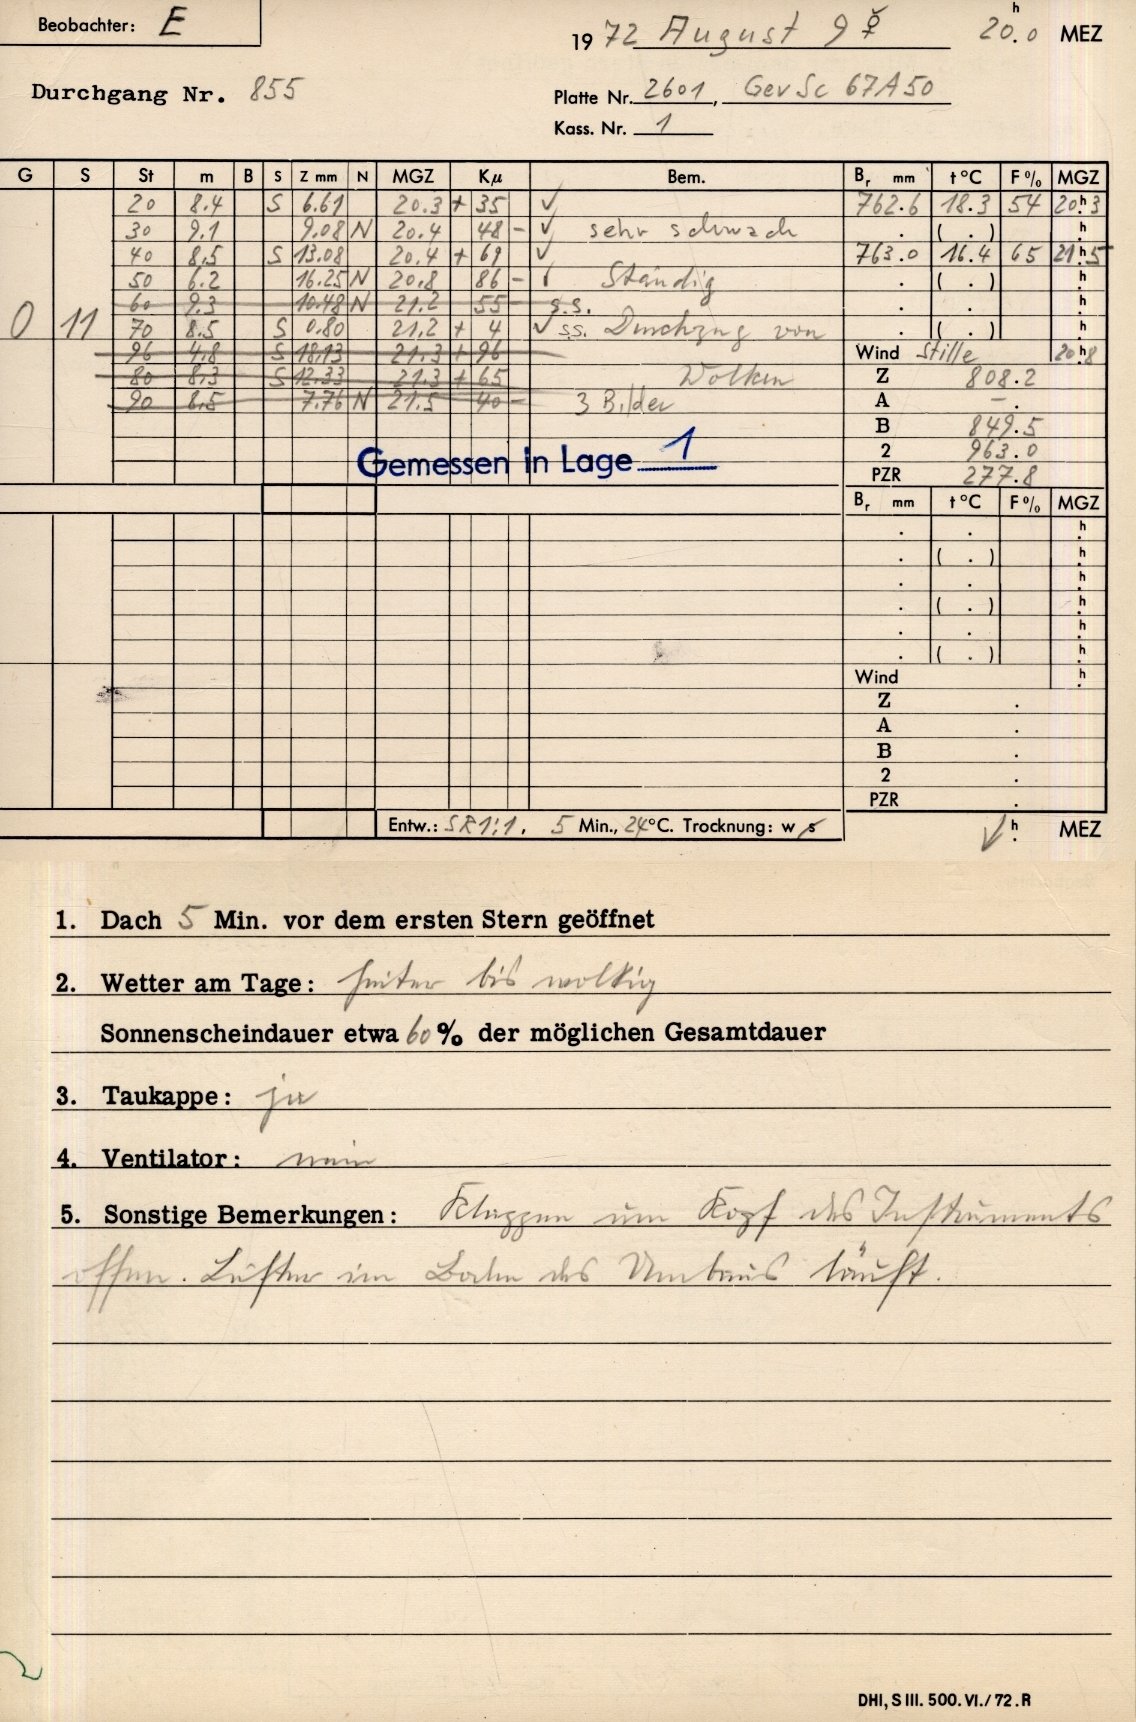 Beobachter: E
1972 August 9 ☿ 20.0 h MEZ
Durchgang Nr. 855
Platte Nr. 2601, GevSc 67A50
Kass. Nr. 1
G S St m B S Z mm N MGZ Kµ Bem. Br mm t °C F % MGZ
20 8.4 S 6.61 20.3 + 35 ✓ 762.6 18.3 54 20h.3
30 9.1 9.08 N 20.4 48 - ✓ sehr schwach . ( . ) h
40 8.5 S 13.08 20.4 + 69 ✓ 763.0 16.4 65 21h.5
50 6.2 16.25 N 20.8 86 - Ständig . ( . ) h
60 9.3 10.48 N 21.2 55 - s.s. . . h
0 11 70 8.5 S 0.80 21.2 + 4 ✓ s.s. Durchzug von . ( . ) h
96 4.8 S 18.13 21.3 + 96 Wind Stille 20h.8
80 8.3 S 12.33 21.3 + 65 Wolken Z 808.2
90 8.5 7.76 N 21.5 40 - 3 Bilder A - .
B 849.5
Gemessen in Lage 1 2 963.0
PZR 277.8
Br mm t °C F % MGZ
. . h
. ( . ) h
. . h
. ( . ) h
. . h
. ( . ) h
Wind h
Z .
A .
B .
2 .
PZR .
Entw.: SR1:1, 5 Min., 24°C. Trocknung: w s ✓ h. MEZ
1. Dach 5 Min. vor dem ersten Stern geöffnet
2. Wetter am Tage: heiter bis wolkig
Sonnenscheindauer etwa 60 % der möglichen Gesamtdauer
3. Taukappe: ja
4. Ventilator: nein
5. Sonstige Bemerkungen: Klappen um Kopf des Instruments
offen. Lüfter im Boden des Umbaus läuft.
DHI, S III. 500. VI./72. R